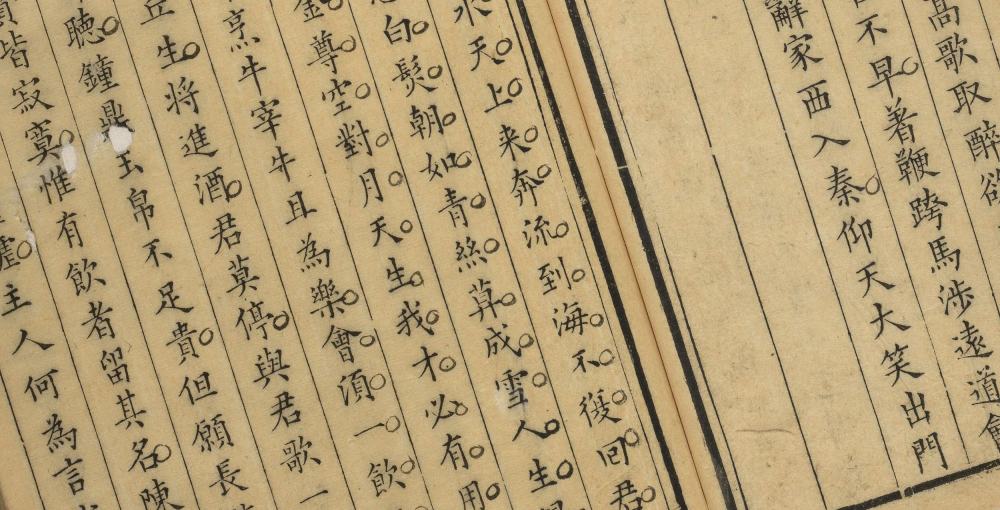 高歌取醉欲
不早著鞭跨馬涉遠道會
辭家西入秦仰天大笑出門
水天上来奔流到海不復回君
白髮朝如青絲草成雪人生
金尊空對月天生我才必有用
烹牛宰牛且為樂會須一飲
丘生將進酒君莫停與君歌一
聽鐘鼎玉帛不足貴但願長
皆寂寞惟有飲者留其名陳
主人何為言